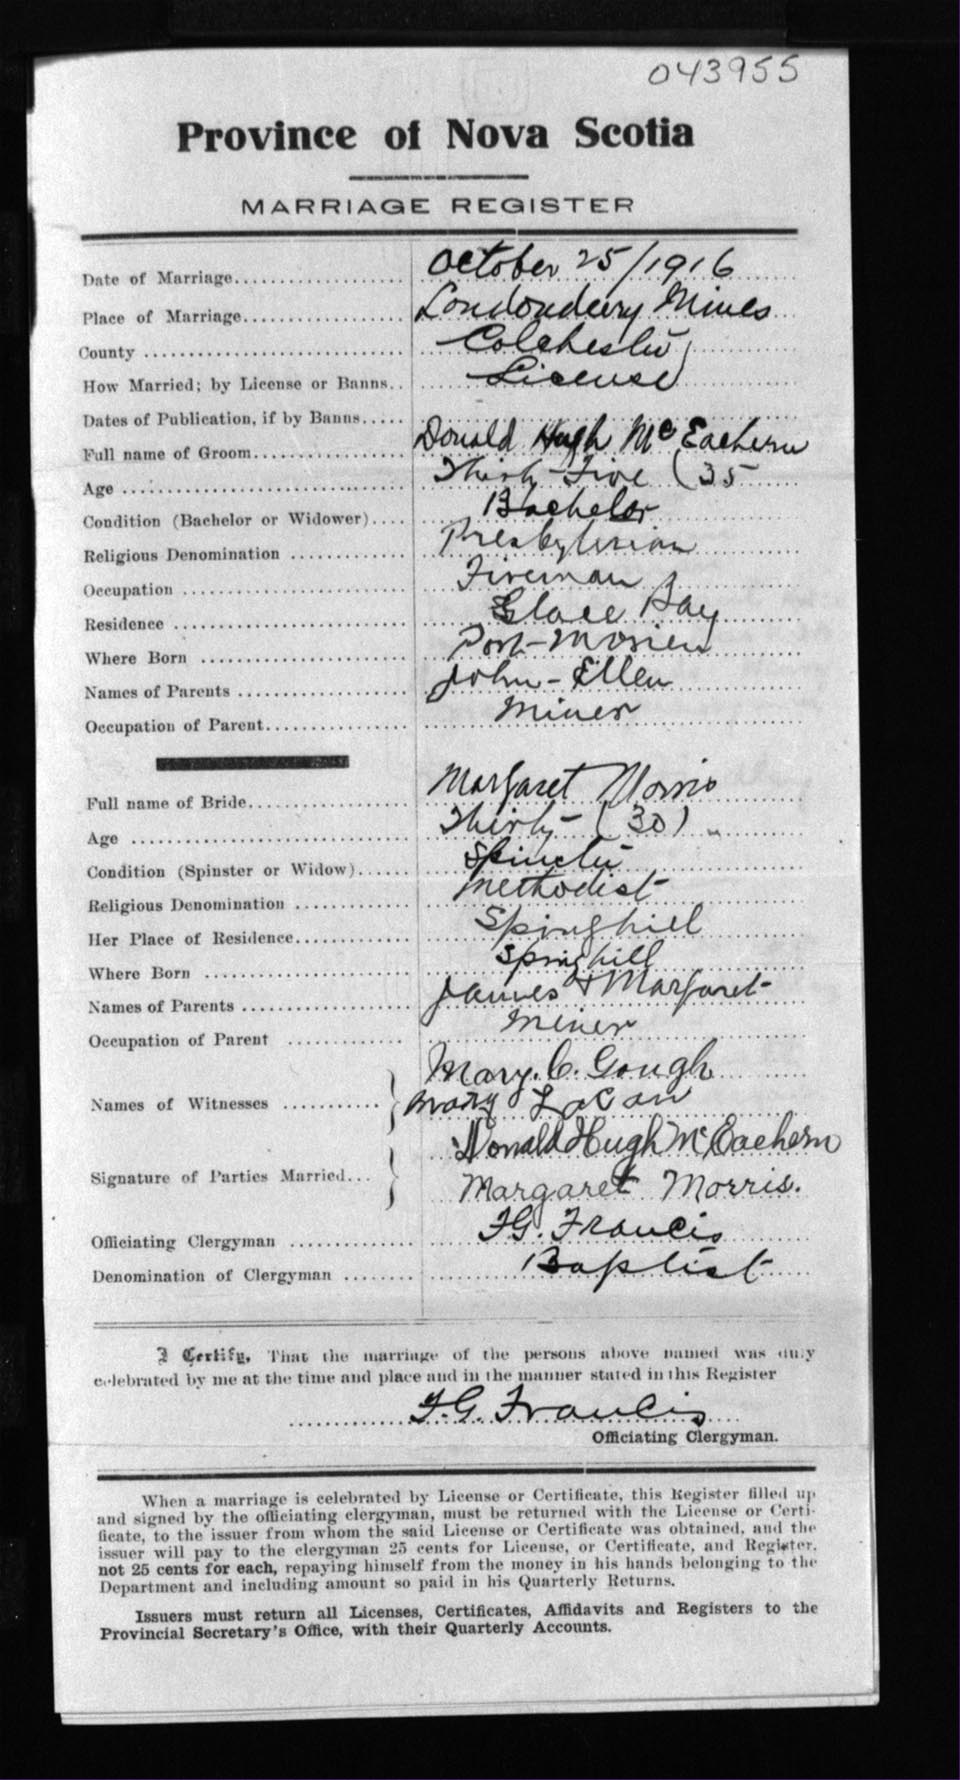 043955
Province of Nova Scotia
MARRIAGE REGISTER
Date of Marriage................... October 25/1916
Place of Marriage.................. Londonderry Mines
County ............................ Colchester
How Married; by License or Banns.. License
Dates of Publication, if by Banns.....
Full name of Groom................. Donald Hugh McEachern
Age ............................... Thirty-Five (35
Condition (Bachelor or Widower).... Bachelor
Religious Denomination ............ Presbyterian
Occupation ........................ Fireman
Residence ......................... Glace Bay
Where Born ........................ Port-Morien
Names of Parents .................. John - Ellen
Occupation of Parent............... Miner
Full name of Bride................. Margaret Morris
Age ............................... Thirty- (30)
Condition (Spinster or Widow)...... Spinster
Religious Denomination ............ Methodist
Her Place of Residence............. Springhill
Where Born ........................ Springhill
Names of Parents .................. James & Margaret
Occupation of Parent .............. Miner
Mary. C. Gough
Names of Witnesses ........... Mary
Donald Hugh McEachern
Signature of Parties Married... Margaret Morris.
Officiating Clergyman ............. F.G. Francis
Denomination of Clergyman ........ Baptist
I Certify, That the marriage of the persons above named was duly
celebrated by me at the time and place and in the manner stated in this Register
F.G. Francis
Officiating Clergyman.
When a marriage is celebrated by License or Certificate, this Register filled up
and signed by the officiating clergyman, must be returned with the License or Certi-
ficate, to the issuer from whom the said License or Certificate was obtained, and the
issuer will pay to the clergyman 25 cents for License, or Certificate, and Register,
not 25 cents for each, repaying himself from the money in his hands belonging to the
Department and including amount so paid in his Quarterly Returns.
Issuers must return all Licenses, Certificates, Affidavits and Registers to the
Provincial Secretary's Office, with their Quarterly Accounts.